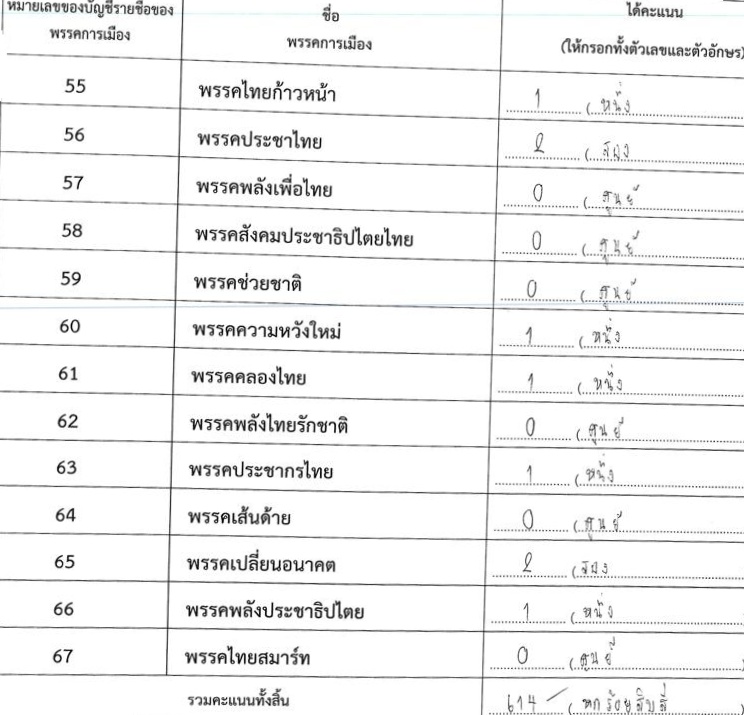 หมายเลขของบัญชีรายชื่อของ ชื่อ ได้คะแนน
พรรคการเมือง พรรคการเมือง (ให้กรอกทั้งตัวเลขและตัวอักษร)
55 พรรคไทยก้าวหน้า 1 ( หนึ่ง
56 พรรคประชาไทย 2 ( สอง
57 พรรคพลังเพื่อไทย 0 ( ศูนย์
58 พรรคสังคมประชาธิปไตยไทย 0 ( ศูนย์
59 พรรคช่วยชาติ 0 ( ศูนย์
60 พรรคความหวังใหม่ 1 ( หนึ่ง
61 พรรคคลองไทย 1 ( หนึ่ง
62 พรรคพลังไทยรักชาติ 0 ( ศูนย์
63 พรรคประชากรไทย 1 ( หนึ่ง
64 พรรคเส้นด้าย 0 ( ศูนย์
65 พรรคเปลี่ยนอนาคต 2 ( สอง
66 พรรคพลังประชาธิปไตย 1 ( หนึ่ง
67 พรรคไทยสมาร์ท 0 ( ศูนย์
รวมคะแนนทั้งสิ้น 614 ( หกร้อยสิบสี่ )